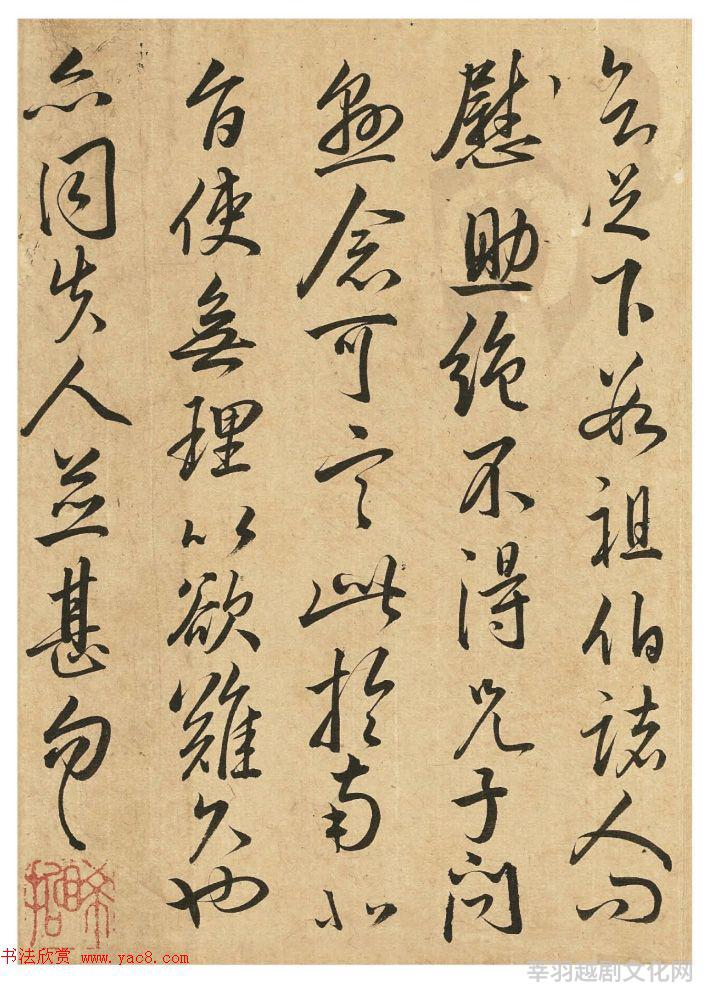 云足下祖伯諸人問
慰絶不得兄子問
懸念可言此於南北
使無理以欲難久也
同失人並甚
书法欣赏 www.yac8.com
幸羽越剧文化网